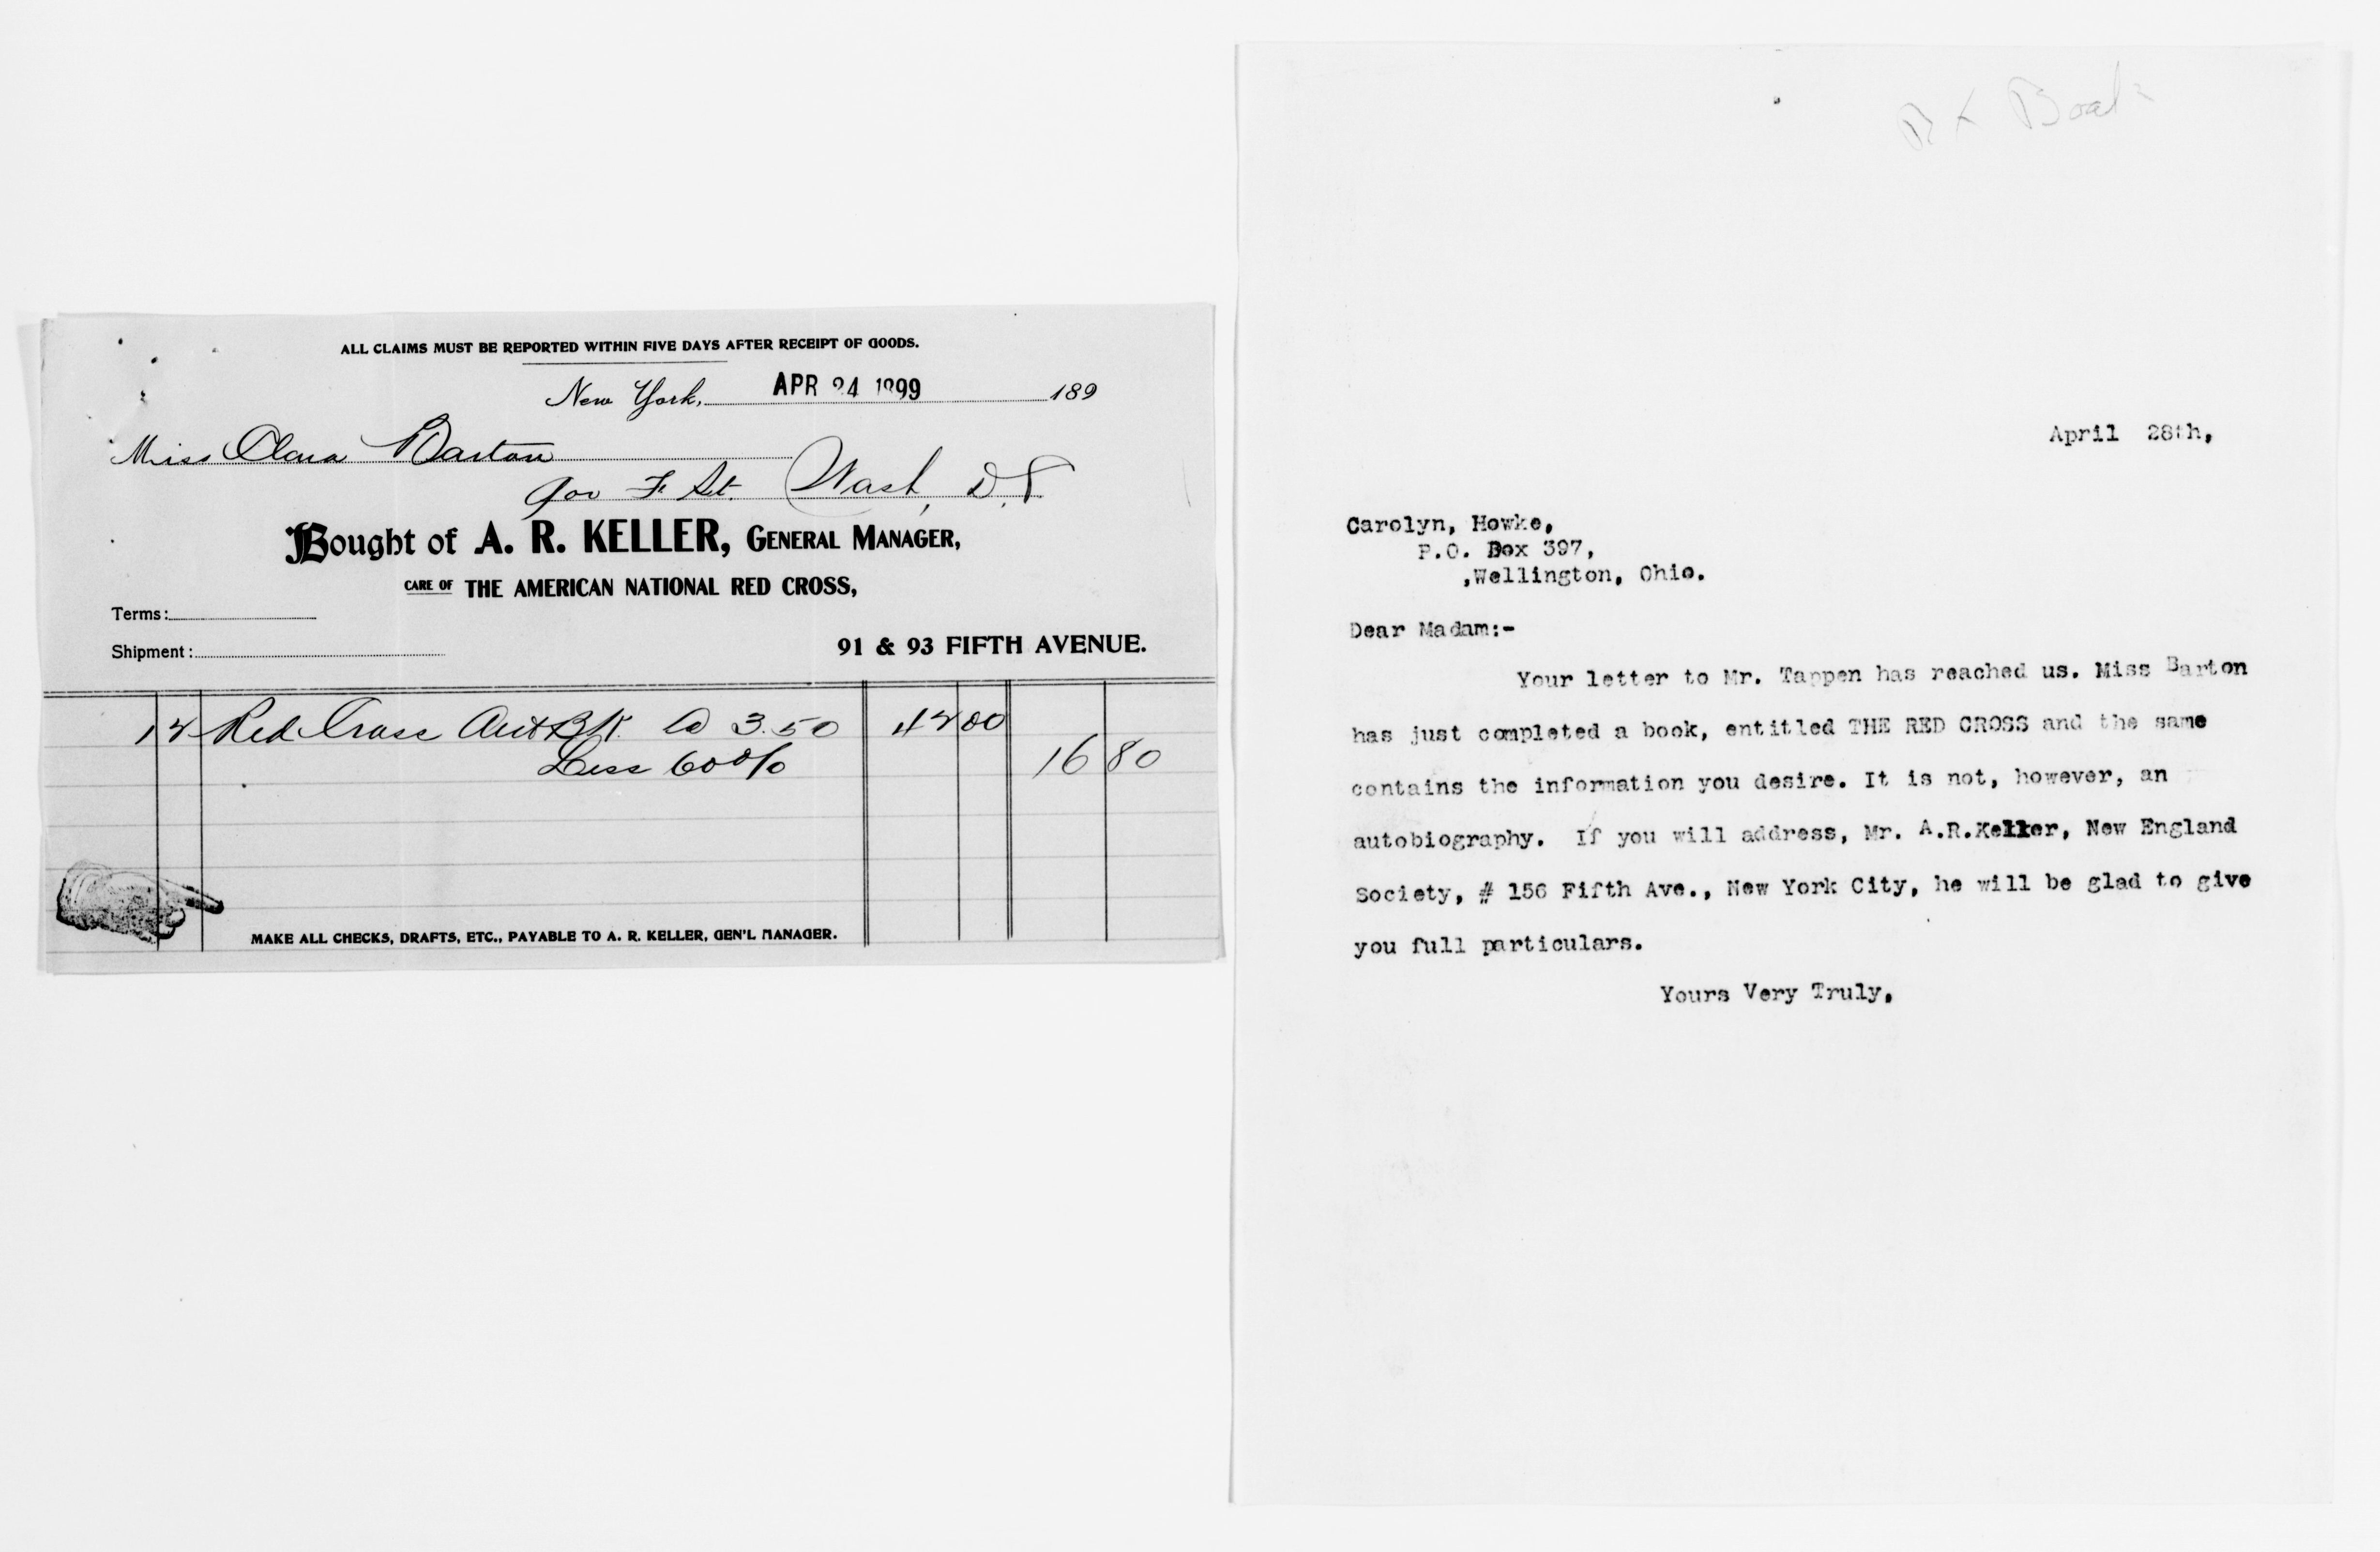 ALL CLAIMS MUST BE REPORTED WITHIN FIVE DAYS AFTER RECEIPT OF GOODS.
New York, APR 24 1899 189
Miss Clara Barton
F St. Wash, D.C.
Bought of A. R. KELLER, GENERAL MANAGER,
CARE OF THE AMERICAN NATIONAL RED CROSS,
Terms:
Shipment:
91 & 93 FIFTH AVENUE.
12 Red Cross @ 3.50 42 00
Less 60% 16 80
MAKE ALL CHECKS, DRAFTS, ETC., PAYABLE TO A. R. KELLER, GEN'L MANAGER.
Book
April 28th,
Carolyn, Howke,
P.O. Box 397,
,Wellington, Ohio.
Dear Madam:-
Your letter to Mr. Tappen has reached us. Miss Barton
has just completed a book, entitled THE RED CROSS and the same
contains the information you desire. It is not, however, an
autobiography. If you will address, Mr. A.R.Keller, New England
Society, # 156 Fifth Ave., New York City, he will be glad to give
you full particulars.
Yours Very Truly,